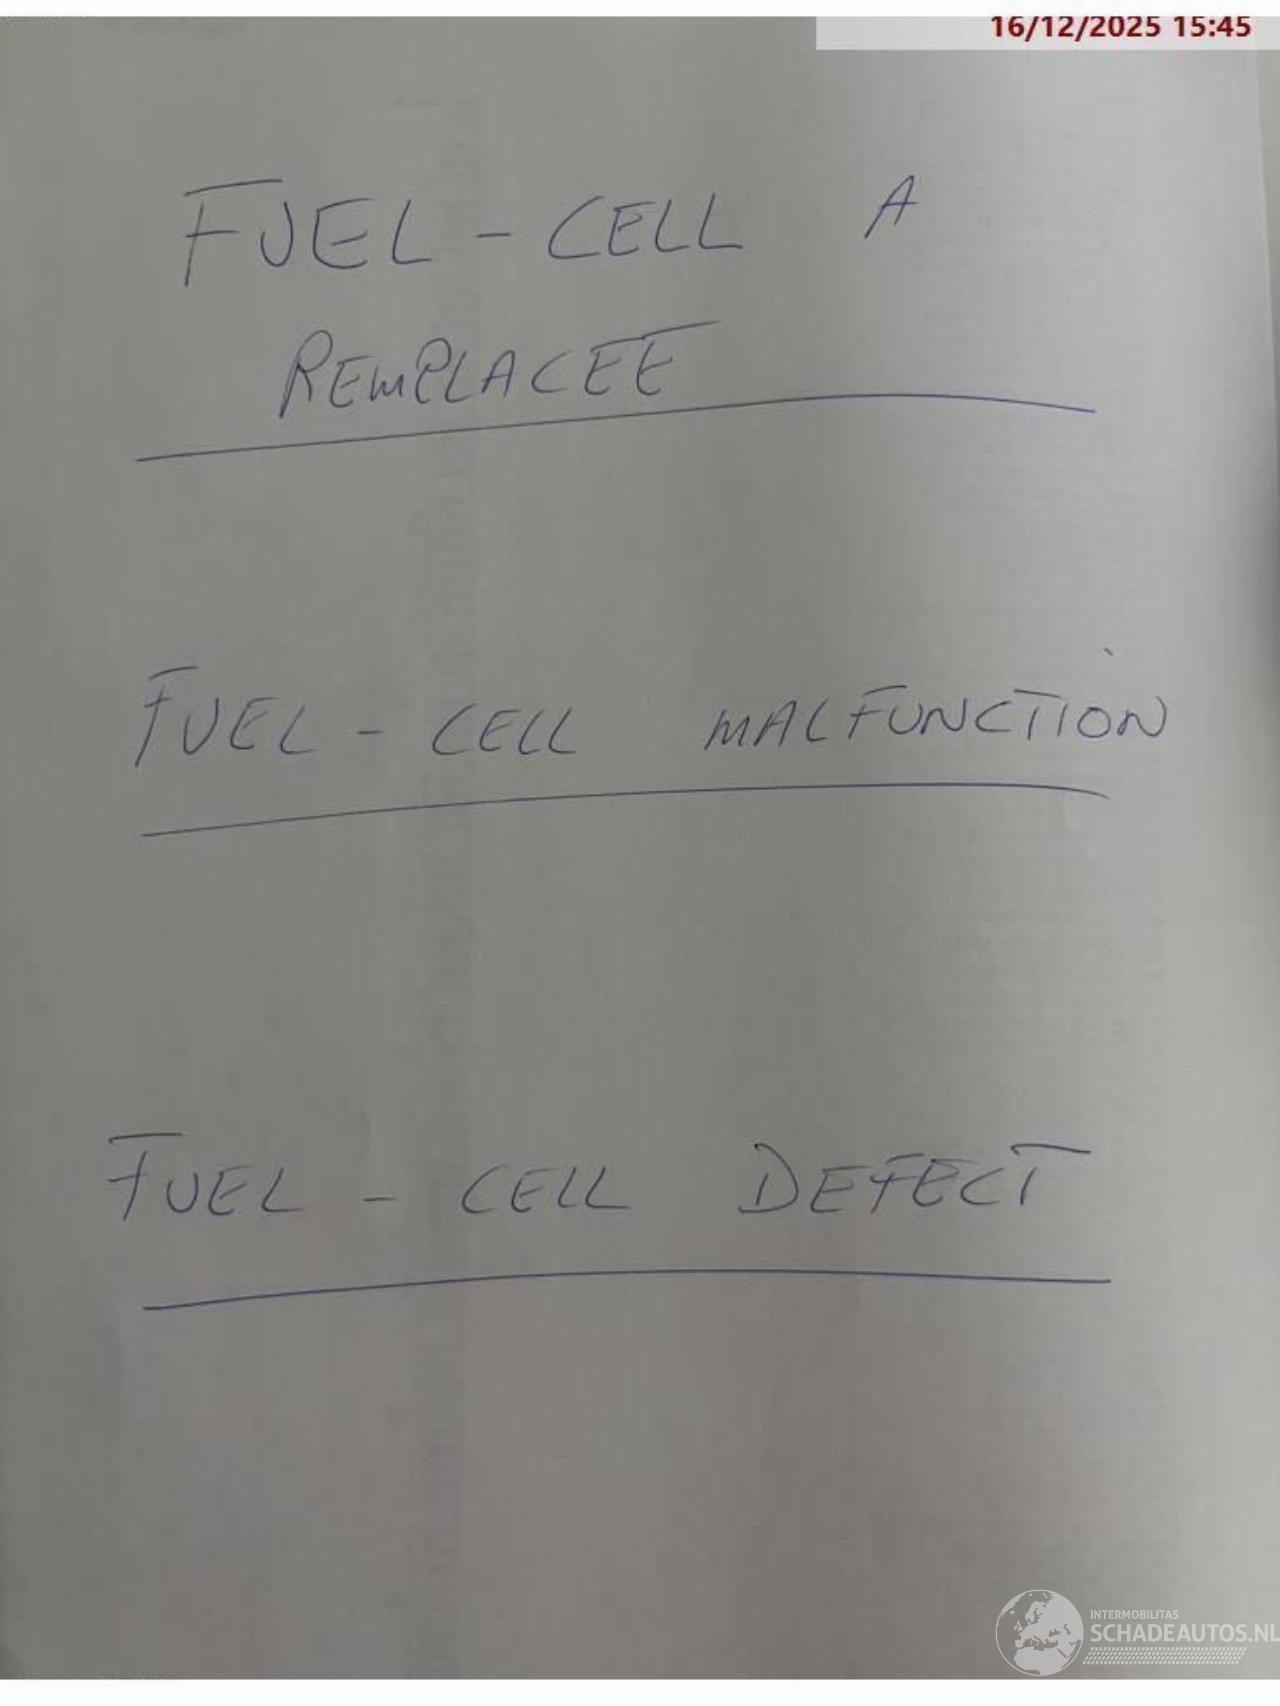 16/12/2025 15:45
FUEL - CELL A
REMPLACEE
FUEL - CELL MALFUNCTION
FUEL - CELL DEFECT
INTERMOBILITAS
SCHADEAUTOS.NL